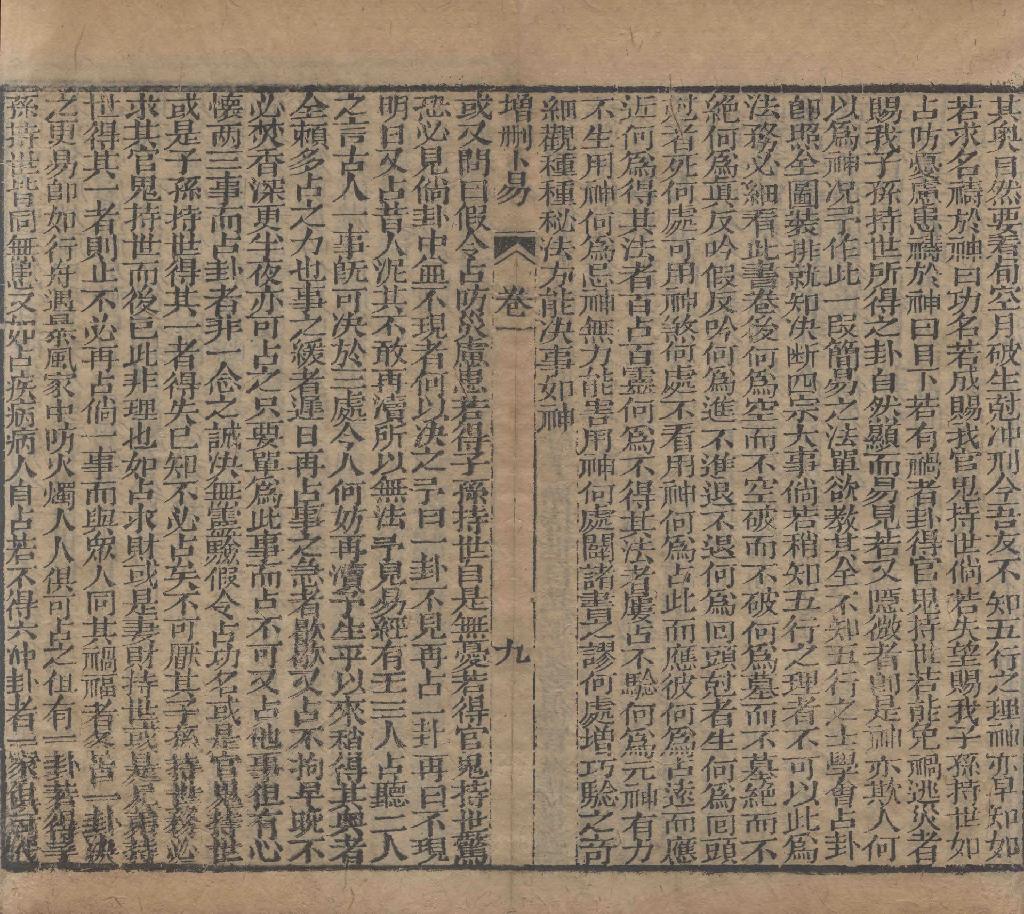 其奧自然要看旬空月破生尅冲刑今吾友不知五行之理神亦早知如
若求名禱於神曰功名若成賜我官鬼持世倘若失望賜我子孫持世如
占防憂慮患禱於神曰目下若有禍者卦得官鬼持世若能免禍逃災者
賜我子孫持世所得之卦自然顯而易見若又隱微者卽是神亦欺人何
以為神况予作此一叚簡易之法單欲教其全不知五行之士學會占卦
卽照全圖裝排就知决断四宗大事倘若稍知五行之理者不可以此為
法務必細看此書卷後何為空而不空破而不破何為墓而不墓絶而不
絶何為真反吟假反吟何為進不進退不退何為回頭尅者生何為回頭
尅者死何處可用神煞何處不看用神何為占此而應彼何為占遠而應
近何為得其法者百占百靈何為不得其法者屢占不驗何為元神有力
不生用神何為忌神無力能害用神何處闢諸書之謬何處增巧驗之竒
細觀種種秘法方能决事如神
增刪卜易 卷一 九
或又問曰假令占防災慮患若得子孫持世自是無憂若得官鬼持世驚
恐必見倘卦中無不現者何以决之予曰一卦不見再占一卦再曰不現
明日又占昔人泥其不敢再瀆所以無法予見易經有三人占聽二人
之言古人一事旣可决於三處今人何妨再瀆予生平以來稍得其奧者
全賴多占之力也事之緩者遲日再占事之急者歇歇又占不拘早晚不
必焚香深更半夜亦可占之只要單為此事而占不可又占他事但有心
懷两三事而占卦者非一念之誠决無靈驗假令占功名或是官鬼持世
或是子孫持世得其一者得失已知不必占矣不可厭其子孫持世務必
求其官鬼持世而後已此非理也如占求財或是妻財持世或是兄弟持
世得其一者則止不必再占倘一事而與衆人同其禍福者各占一卦决
之更易卽如行舟遇暴風家中防火燭人人俱可占之但有一卦若得子
孫持世皆同無患又如占疾病病人自占若不得六冲卦者一家俱可代